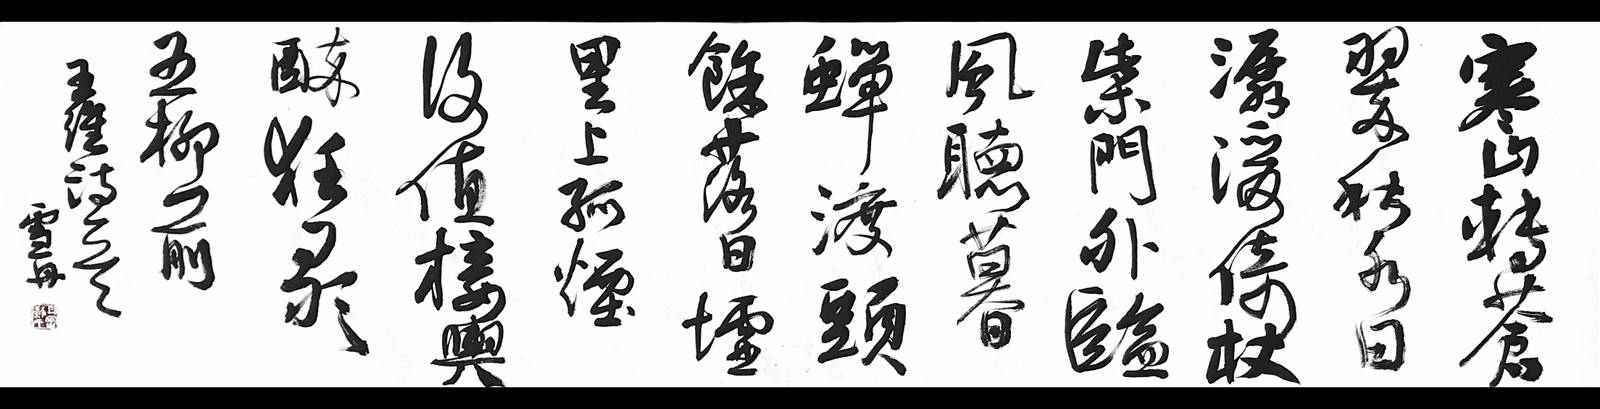 寒山轉蒼
翠秋水日
潺湲倚杖
柴門外臨
風聽暮
蟬渡頭
餘落日墟
里上孤煙
復值接輿
醉狂歌
五柳前
王維詩
雪丹